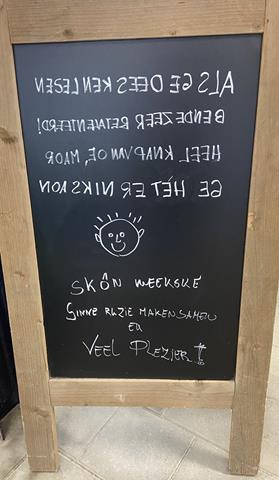 ALS GE DEES KEN LESEN
BENDE ZEER GETALENTEERD!
HEEL KNAP VAN OE, MAOR
GE HÉT ER NIKS AON
SKÔN WEEKSKE
GINNE RUZIE MAKEN SAMEN
EN
VEEL PLEZIER!